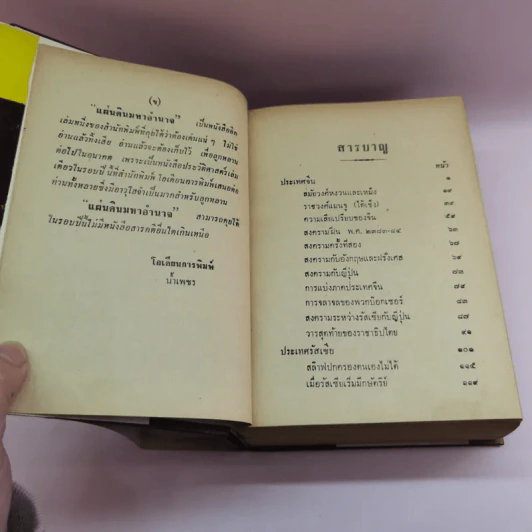 (ข)
"แผ่นดินมหาอำนาจ" เป็นหนังสืออีก
เล่มหนึ่งของสำนักพิมพ์ที่คุยได้ว่าต้องเด่นแน่ ๆ ไม่ใช่
อ่านแล้วทิ้งเสีย อ่านแล้วจะต้องเก็บไว้ เพื่อลูกหลาน
ต่อไปในอนาคต เพราะเป็นหนังสือประวัติศาสตร์เล่ม
เดียวในรอบปี นี้ที่สำนักพิมพ์ โอเดียนการพิมพ์เสนอต่อ
ท่านทั้งหลายซึ่งมี
"แผ่นดินมหาอำนาจ" สามารถคุยได้
ในรอบปีนี้ไม่มีหนังสือสารคดีอื่นใดเกินเหนือ
โอเดียนการพิมพ์
น้ำเพชร
สารบาญ
หน้า
ประเทศจีน ๑
สมัยวงศ์หงวนและเหม็ง ๑๙
ราชวงศ์แมนจู (ไต้เช็ง) ๓๙
ความเสียเปรียบของจีน ๕๕
สงครามฝิ่น พ.ศ. ๒๓๘๓-๘๔ ๖๓
สงครามครั้งที่สอง ๖๗
สงครามกับอังกฤษและฝรั่งเศส ๖๙
สงครามกับญี่ปุ่น ๗๓
การแบ่งภาคประเทศจีน ๗๙
การจลาจลของพวกบ๊อกเซอร์ ๘๓
สงครามระหว่างรัสเซียกับญี่ปุ่น ๘๗
วาระสุดท้ายของราชาธิปไตย ๙๑
ประเทศรัสเซีย ๑๐๑
สล๊าฟปกครองตนเองไม่ได้ ๑๑๕
เมื่อรัสเซียเริ่มมีกษัตริย์ ๑๑๙